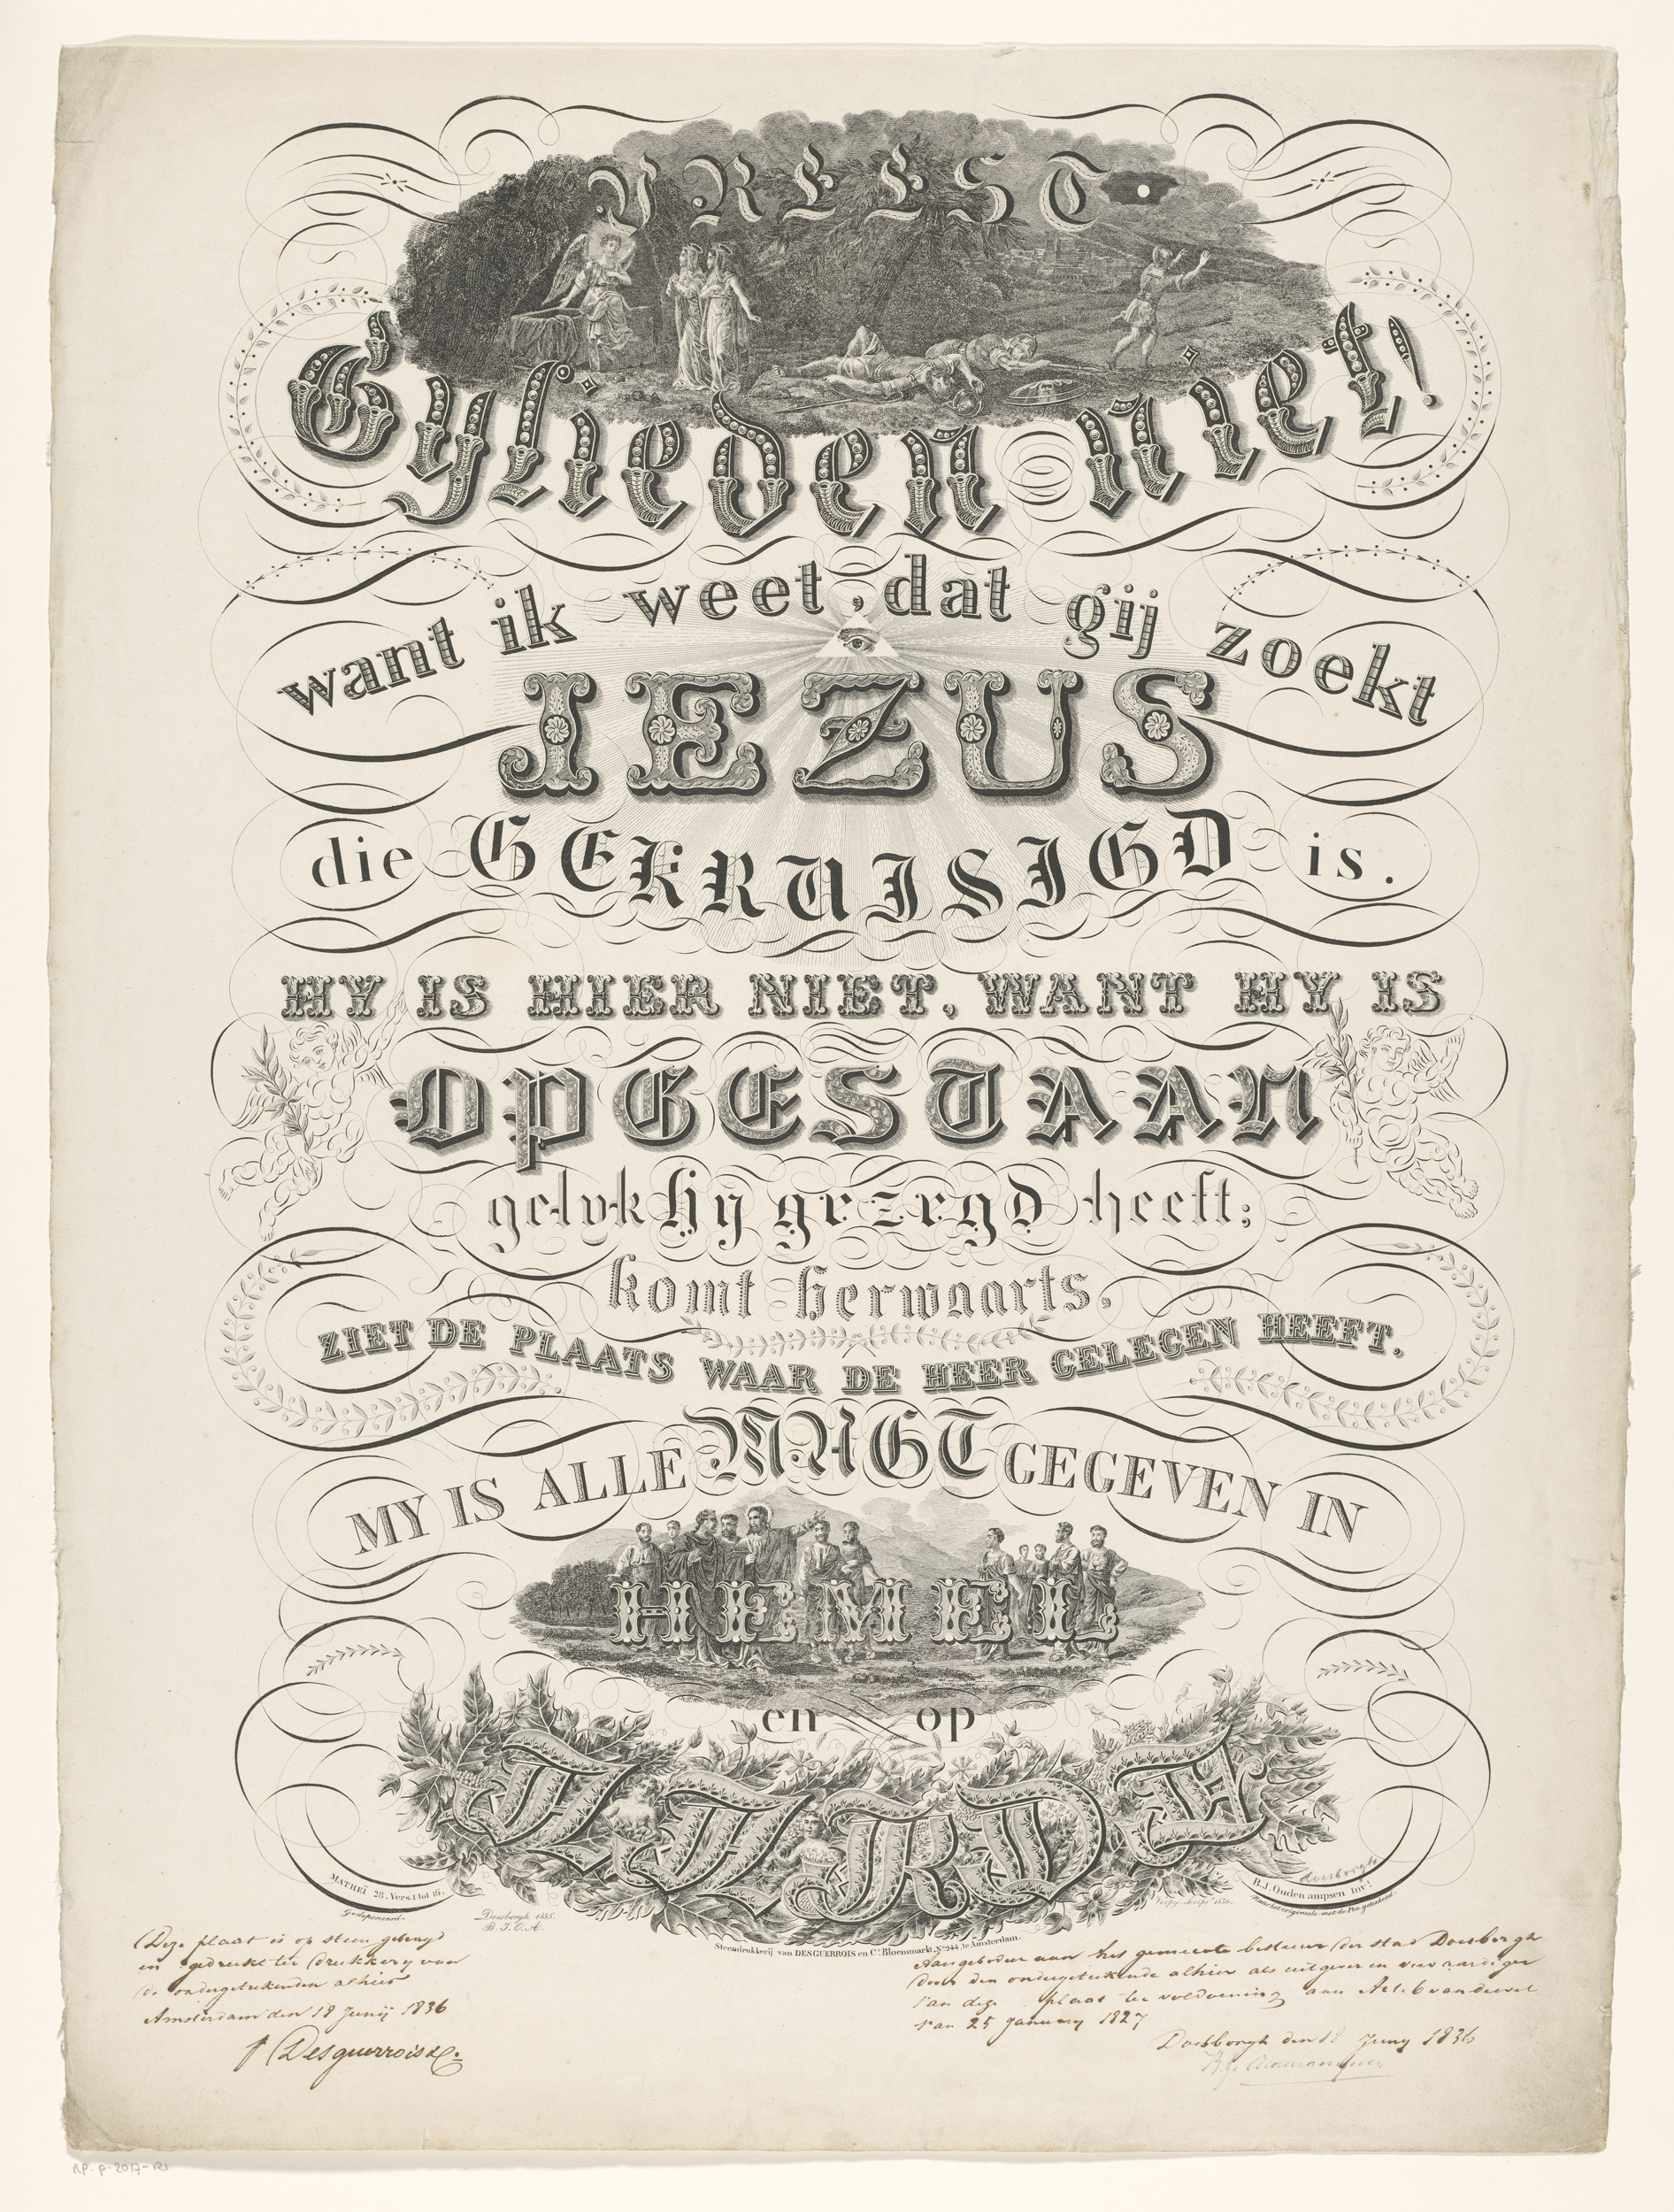 VREEST
Gylieden niet!
want ik weet, dat gij zoekt
JEZUS
die GEKRUISIGD is.
HY IS HIER NIET, WANT HY IS
OPGESTAAN
gelyk Hy gezegd heeft;
komt herwaarts,
ZIET DE PLAATS WAAR DE HEER GELEGEN HEEFT,
MY IS ALLE MAGT GEGEVEN IN
HEMEL
en op
AARDE
MATHEÏ 28. Vers. 1 tot 16.
Gedeponeerd.
Doesborgh 1835.
B. J. O. A.
Steendrukkerij van DESGUERROIS en Co. Bloemmarkt, No. 244, te Amsterdam.
Doesborgh
B.J. Ouden ampsen Inv.
Naar het origineele met de Pen geteekend.
Deze plaat is op steen gebragt
en gedrukt ter Drukkery van
de ondergetekenden alhier
Amsterdam den 18 Junij 1836
Desguerrois & Co.
Aangeboden aan het gemeente bestuur der stad Doesborgh
door den ondergeteekende alhier als uitgever en vervaardiger
van deze plaat ter voldoening aan Art. 6 van de wet
van 25 January 1827
Doesborgh den 18 Juny 1836
RP-P-2017-121